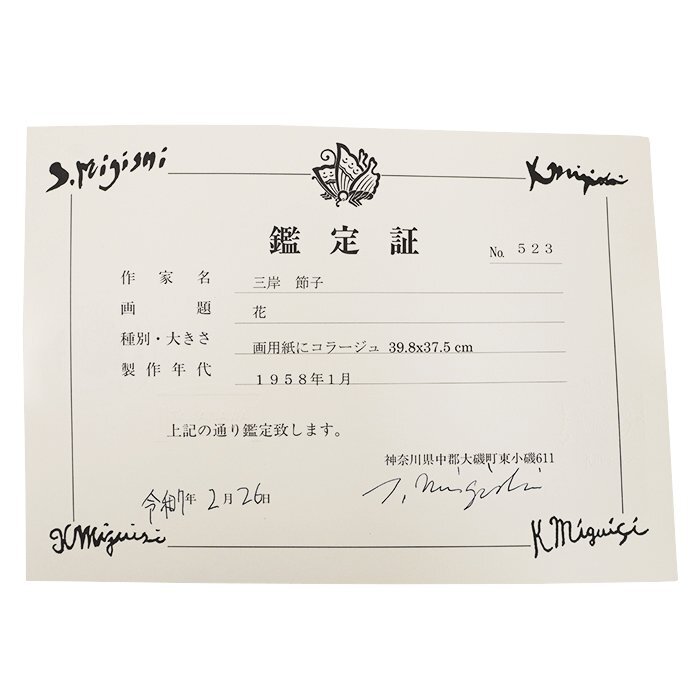 S. Migishi
K Migishi
鑑定証
No. 523
作家名 三岸 節子
画題 花
種別・大きさ 画用紙にコラージュ 39.8x37.5 cm
製作年代 1958年1月
上記の通り鑑定致します。
神奈川県中郡大磯町東小磯611
令和7年 2月 26日
K Miguisi
K Miguisi